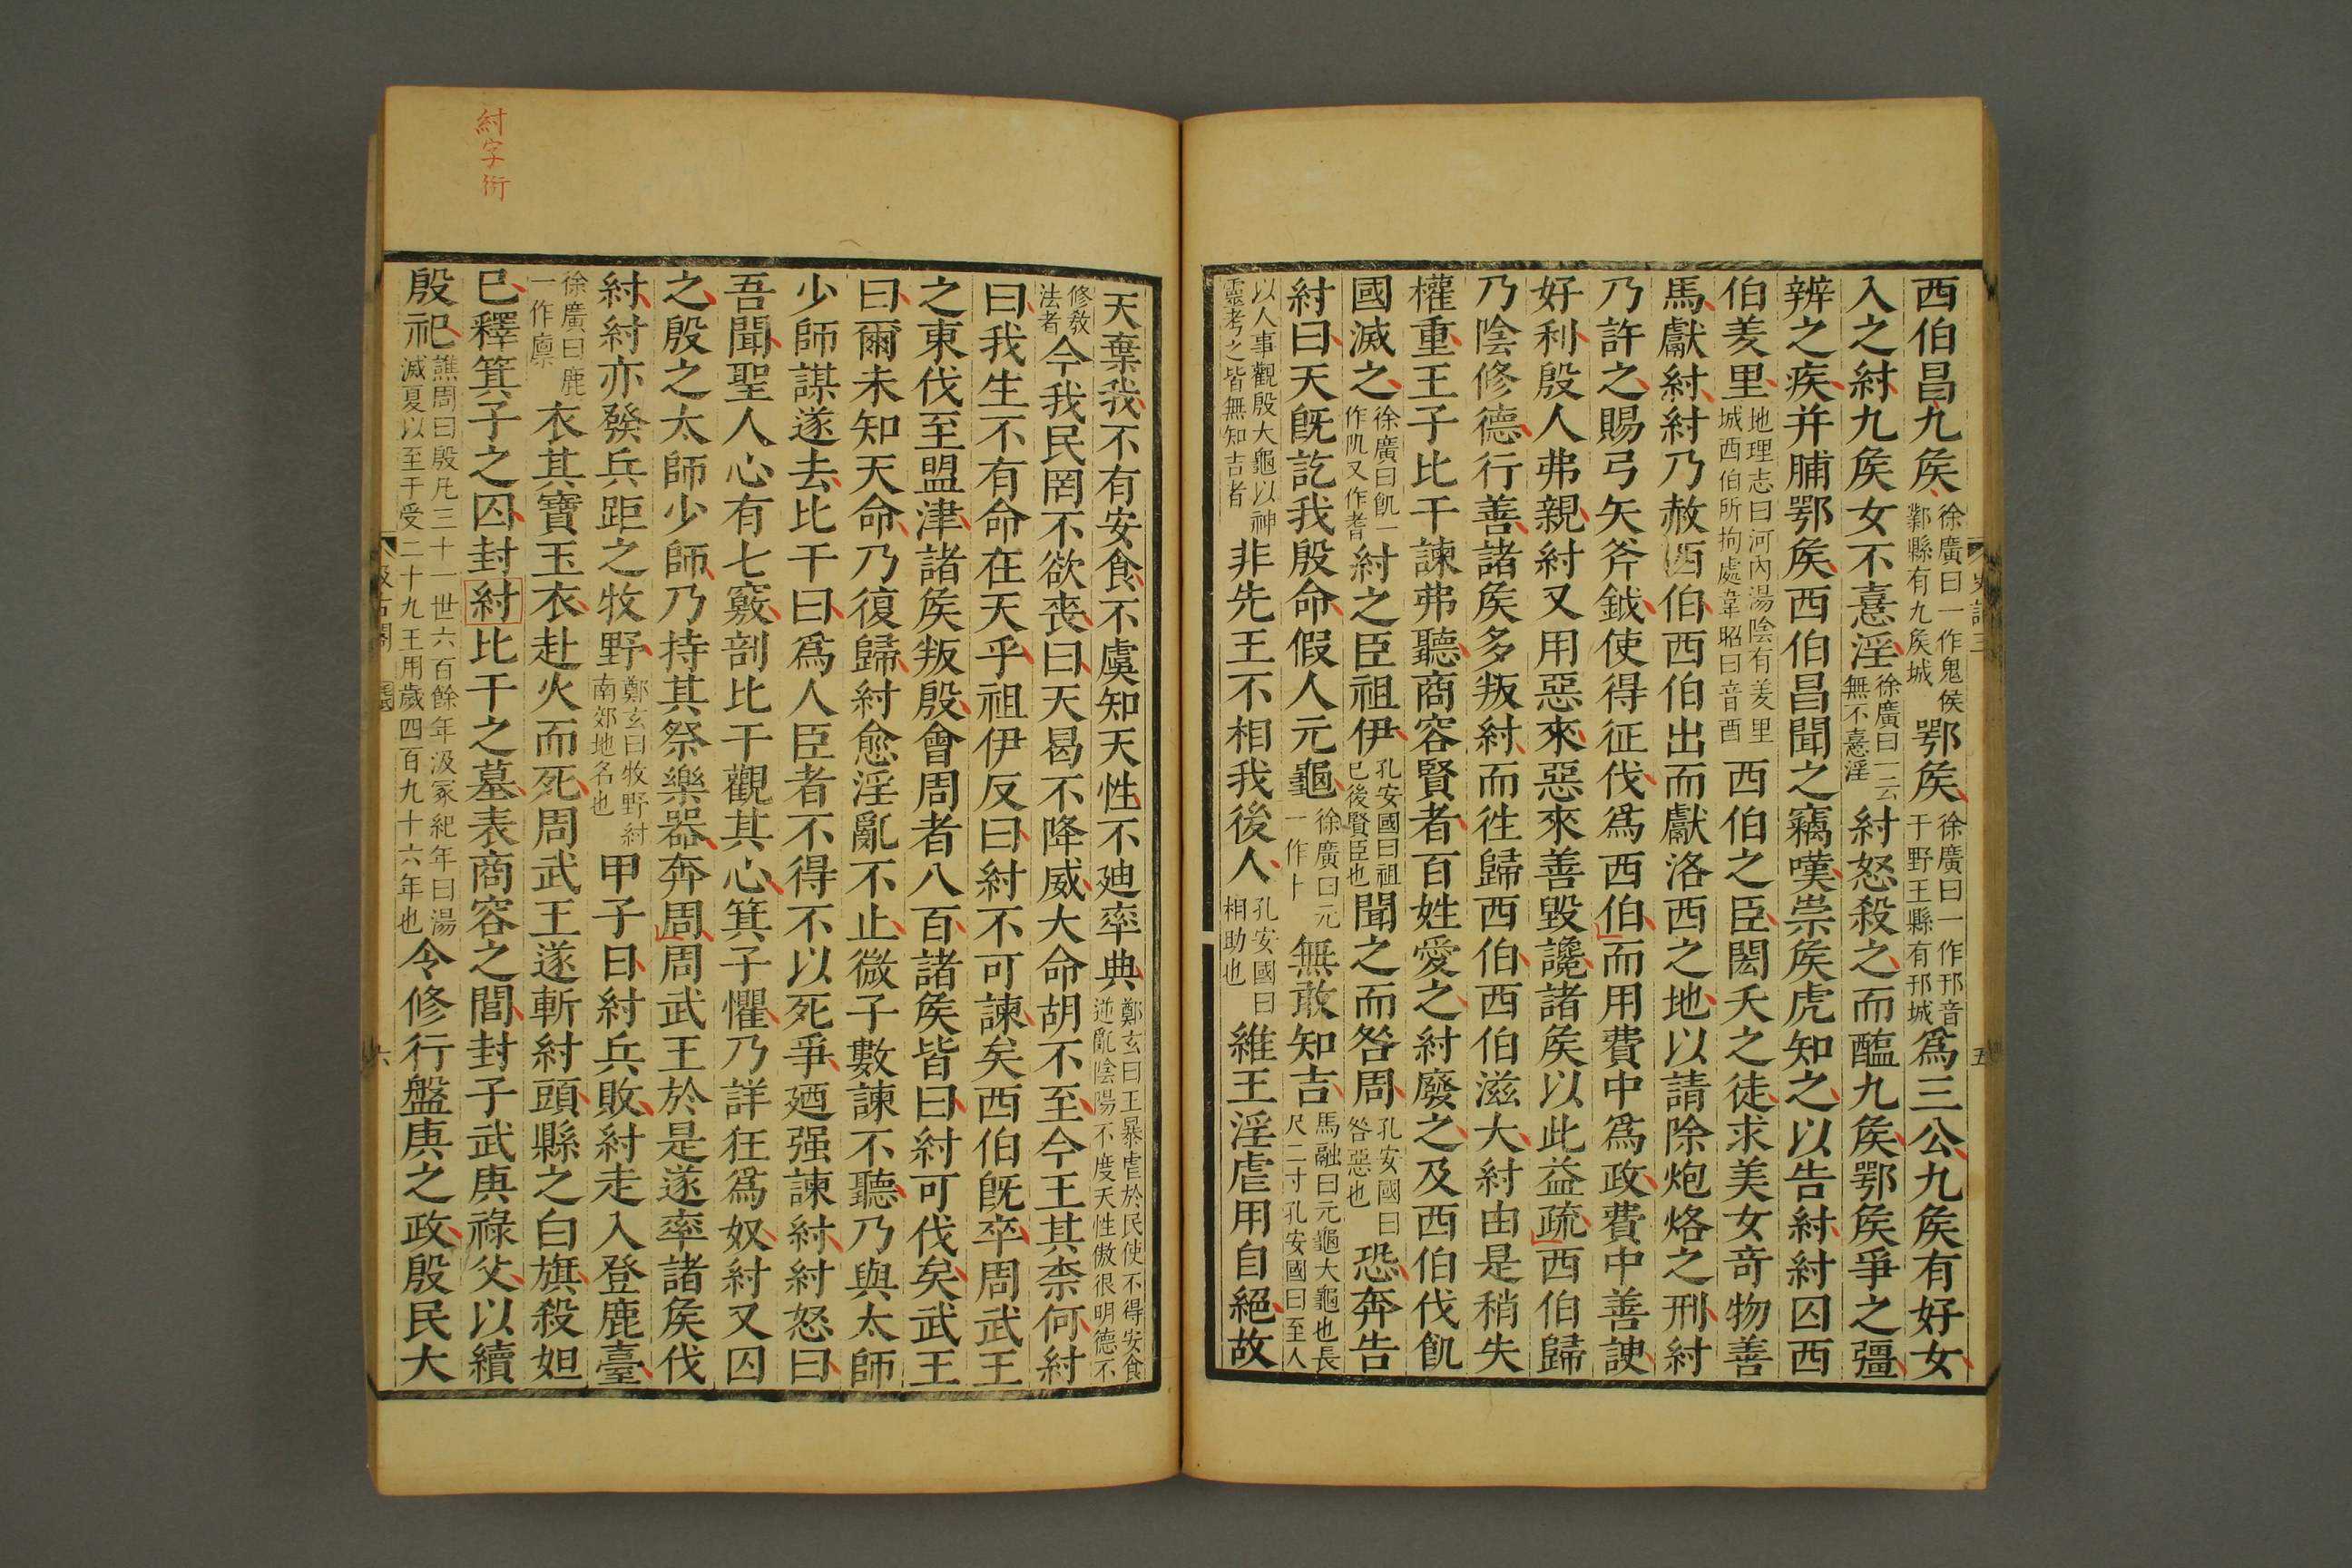 西伯昌九矦徐廣曰一作鬼侯鄴縣有九矦城鄂矦徐廣曰一作邘音于野王縣有邘城爲三公九矦有好女
入之紂九矦女不憙淫徐廣曰一云無不憙淫紂怒殺之而醢九矦鄂矦爭之彊
辨之疾并脯鄂矦西伯昌聞之竊嘆崇矦虎知之以告紂紂囚西
伯羑里地理志曰河內湯陰有羑里城西伯所拘處韋昭曰音酉西伯之臣閎夭之徒求美女奇物善
馬獻紂紂乃赦西伯西伯出而獻洛西之地以請除炮烙之刑紂
乃許之賜弓矢斧鉞使得征伐爲西伯而用費中爲政費中善諛
好利殷人弗親紂又用惡來惡來善毀讒諸矦以此益疏西伯歸
乃陰修德行善諸矦多叛紂而徃歸西伯西伯滋大紂由是稍失
權重王子比干諫弗聽商容賢者百姓愛之紂廢之及西伯伐飢
國滅之徐廣曰飢一作𨸔又作耆紂之臣祖伊孔安國曰祖已後賢臣也聞之而咎周孔安國曰咎惡也恐奔告
紂曰天旣訖我殷命假人元龜徐廣曰元一作卜無敢知吉馬融曰元龜大龜也長尺二寸孔安國曰至人
以人事觀殷大龜以神靈考之皆無知吉者非先王不相我後人孔安國曰相助也維王淫虐用自絕故
天棄我不有安食不虞知天性不迪率典鄭玄曰王暴虐於民使不得安食逆亂陰陽不度天性傲很明德不
修敎法者今我民罔不欲喪曰天曷不降威大命胡不至今王其柰何紂
曰我生不有命在天乎祖伊反曰紂不可諫矣西伯旣卒周武王
之東伐至盟津諸矦叛殷會周者八百諸矦皆曰紂可伐矣武王
曰爾未知天命乃復歸紂愈淫亂不止微子數諫不聽乃與太師
少師謀遂去比干曰爲人臣者不得不以死爭廼强諫紂紂怒曰
吾聞聖人心有七竅剖比干觀其心箕子懼乃詳狂爲奴紂又囚
之殷之太師少師乃持其祭樂器奔周周武王於是遂率諸矦伐
紂紂亦發兵距之牧野鄭玄曰牧野紂南郊地名也甲子日紂兵敗紂走入登鹿臺
徐廣曰鹿一作廩衣其寶玉衣赴火而死周武王遂斬紂頭縣之白旗殺妲
已釋箕子之囚封紂比干之墓表商容之閭封子武庚祿父以續
殷祀譙周曰殷凡三十一世六百餘年汲冢紀年曰湯滅夏以至于受二十九王用歲四百九十六年也令修行盤庚之政殷民大
紂字衍
史記三
五
汲古閣
六